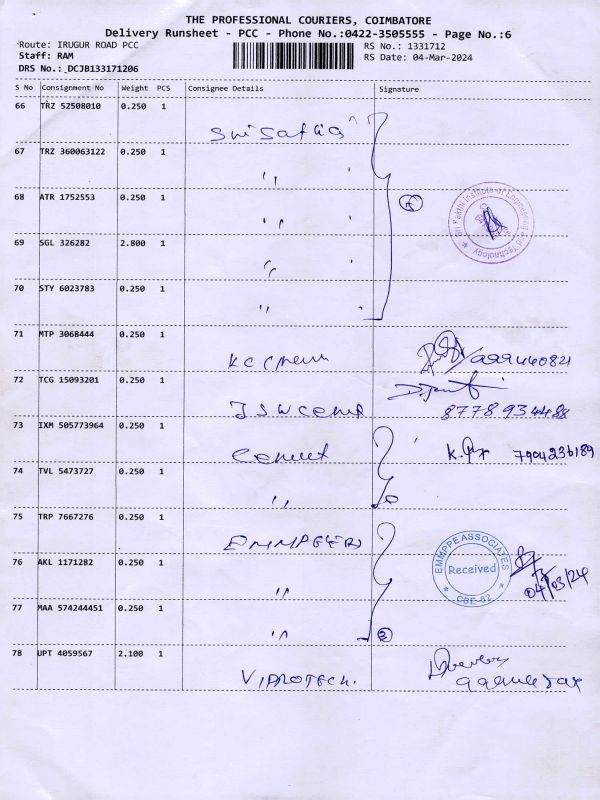 THE PROFESSIONAL COURIERS, COIMBATORE
Delivery Runsheet - PCC - Phone No.:0422-3505555 - Page No.:6
Route: IRUGUR ROAD PCC
RS No.: 1331712
Staff: RAM
RS Date: 04-Mar-2024
DRS No.: DCJB133171206
S No Consignment No Weight PCS Consignee Details Signature
66 TRZ 52508010 0.250 1
67 TRZ 360063122 0.250 1
68 ATR 1752553 0.250 1
Sri Sakthi Institute of Engineering and Technology
69 SGL 326282 2.800 1
70 STY 6023783 0.250 1
71 MTP 3068444 0.250 1
72 TCG 15093201 0.250 1
8778934488
73 IXM 505773964 0.250 1
7904236189
74 TVL 5473727 0.250 1
75 TRP 7667276 0.250 1
EMMPPE ASSOCIATES
Received
CBE-62
04/03/24
76 AKL 1171282 0.250 1
77 MAA 574244451 0.250 1
78 UPT 4059567 2.100 1
VIPROTECH.